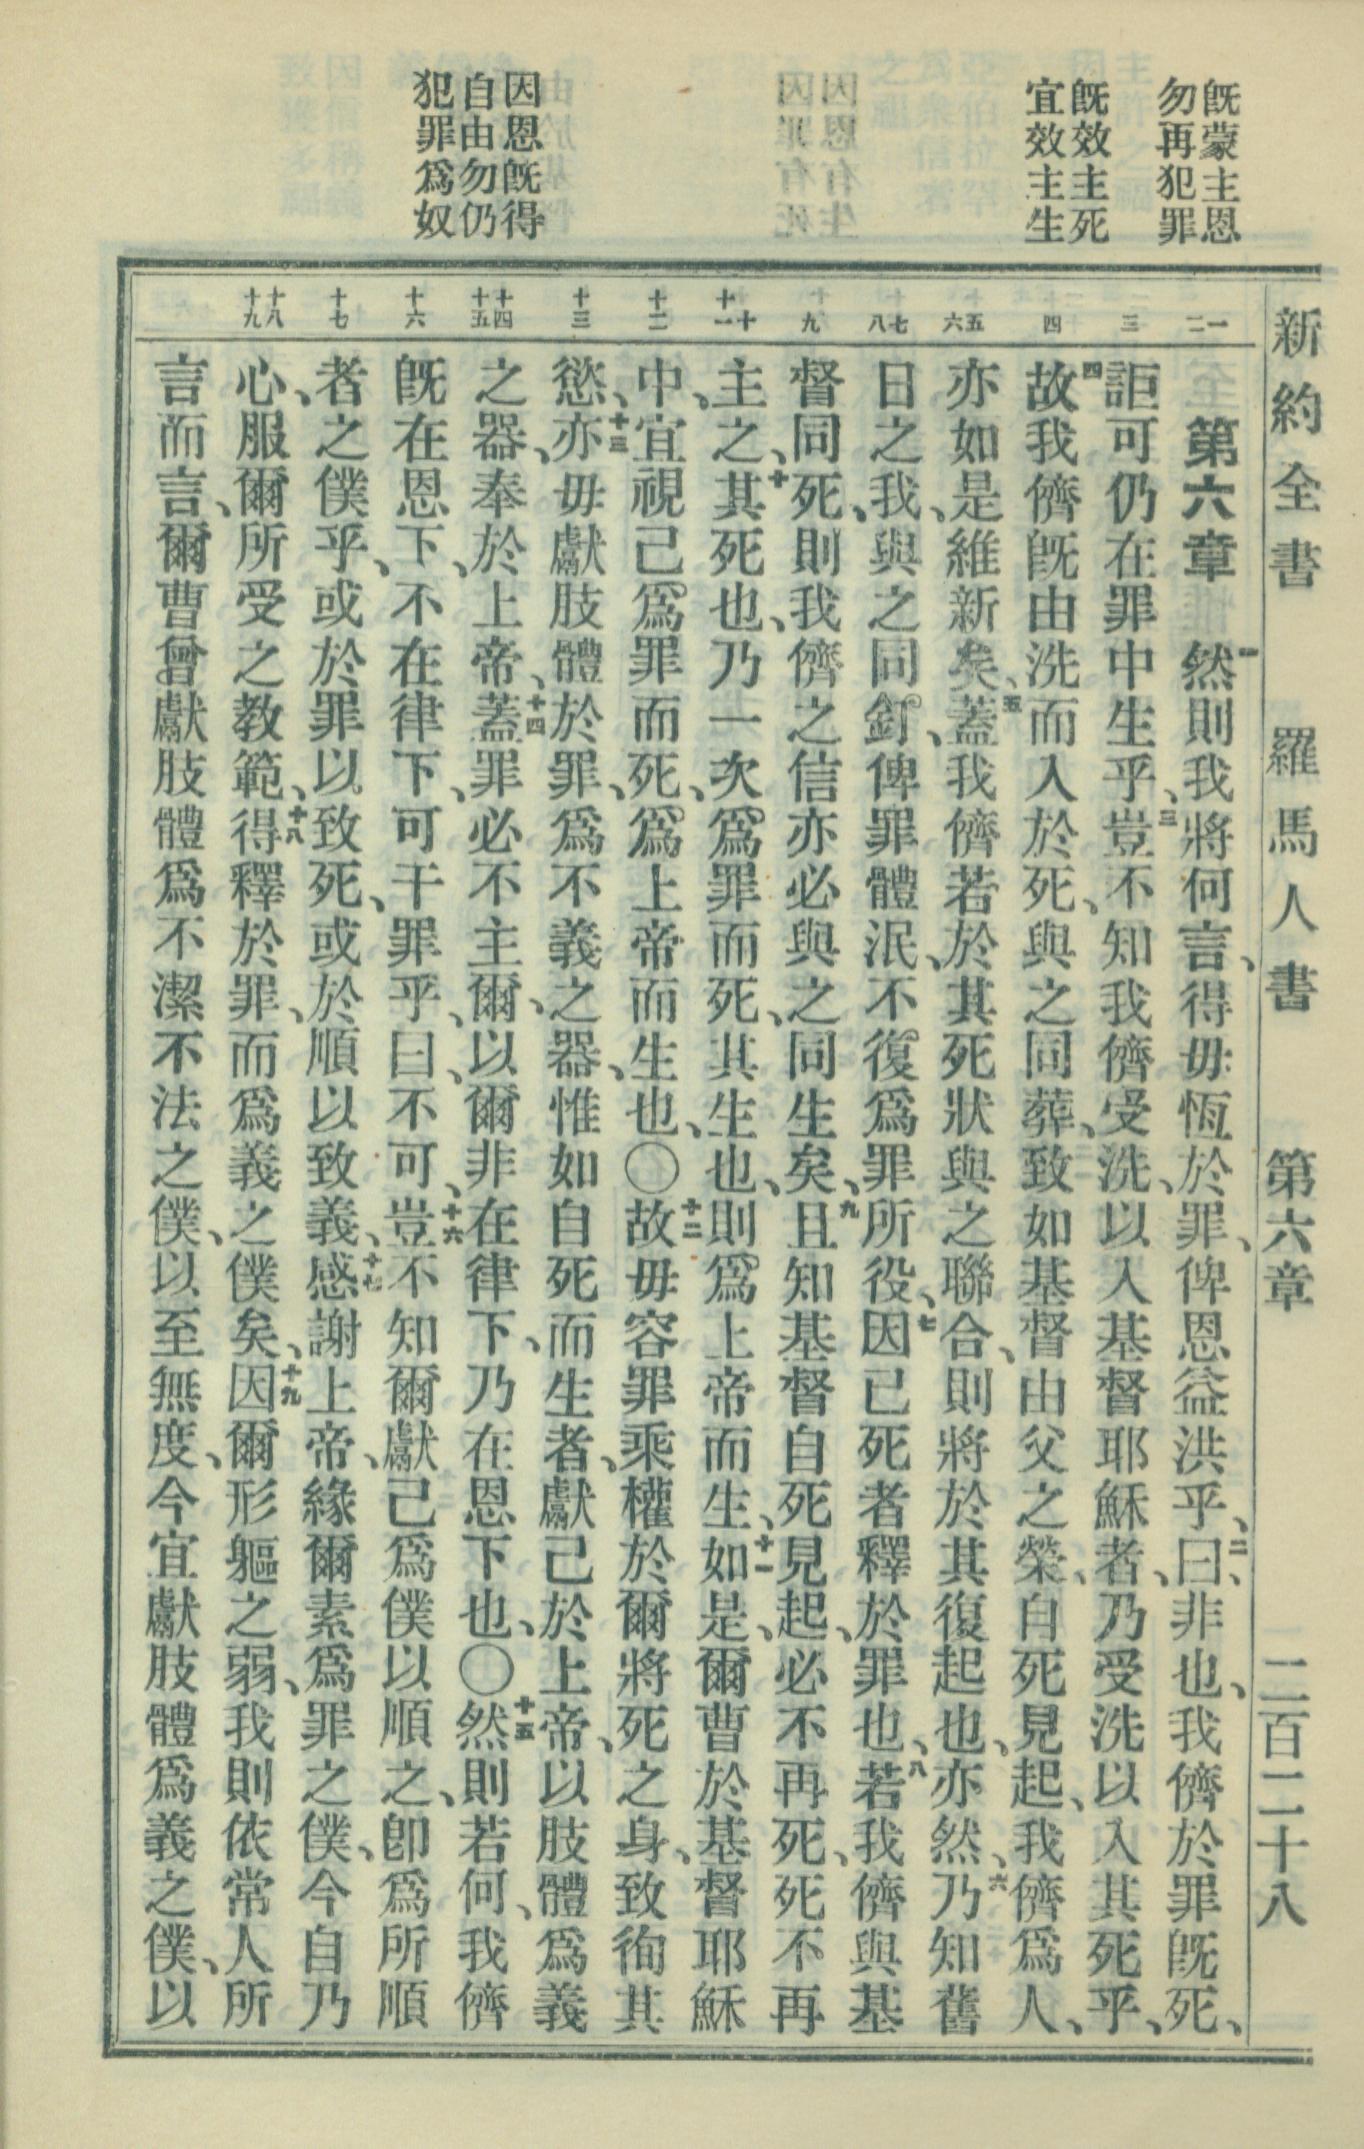 新約全書　羅馬人書　第六章　二百二十八
既蒙主恩
勿再犯罪
既效主死
宜效主生
因恩既得
自由勿仍
犯罪爲奴
一
二
三
四
五
六
七
八
九
十
十一
十二
十三
十四
十五
十六
十七
十八
十九
第六章　一然則我將何言、得毋恆於罪、俾恩益洪乎、二曰、非也、我儕於罪既死、
詎可仍在罪中生乎、三豈不知我儕受洗、以入基督耶穌者、乃受洗以入其死乎、
四故我儕既由洗而入於死、與之同葬、致如基督由父之榮、自死見起、我儕爲人、
亦如是維新矣、五蓋我儕若於其死狀與之聯合、則將於其復起也、亦然、六乃知舊
日之我、與之同釘、俾罪體泯、不復爲罪所役、七因已死者釋於罪也、八若我儕與基
督同死、則我儕之信亦必與之同生矣、九且知基督自死見起、必不再死、死不再
主之、十其死也、乃一次、爲罪而死、其生也、則爲上帝而生、十一如是、爾曹於基督耶穌
中、宜視己爲罪而死、爲上帝而生也、〇十二故毋容罪乘權於爾將死之身、致徇其
慾、十三亦毋獻肢體於罪、爲不義之器、惟如自死而生者、獻己於上帝、以肢體爲義
之器、奉於上帝、十四蓋罪必不主爾、以爾非在律下、乃在恩下也、〇十五然則若何、我儕
既在恩下、不在律下、可干罪乎、曰、不可、十六豈不知爾獻己爲僕以順之、卽爲所順
者之僕乎、或於罪以致死、或於順以致義、十七感謝上帝、緣爾素爲罪之僕、今自乃
心、服爾所受之教範、十八得釋於罪、而爲義之僕矣、十九因爾形軀之弱、我則依常人所
言而言、爾曹曾獻肢體爲不潔不法之僕、以至無度、今宜獻肢體爲義之僕、以